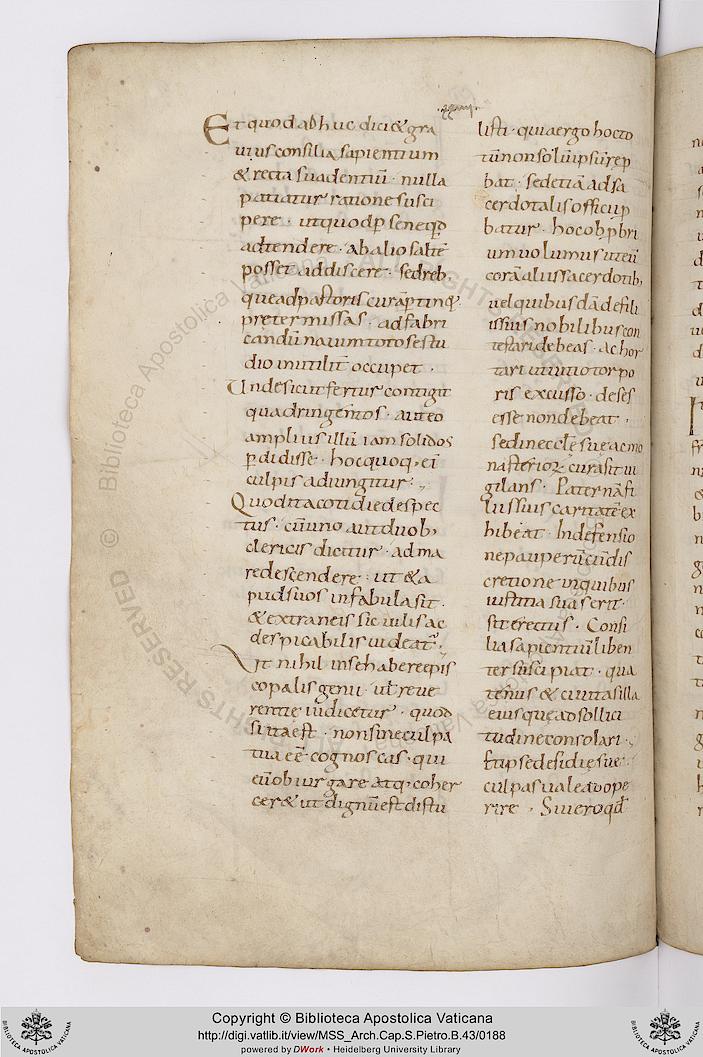 Et quod adhuc dici & gra
uius consilia sapientium
& recta suadentiū · nulla
patiatur ratione susci
pere · ut quod p se neqd
adtendere · ab alio saltē
posset addiscere · sed reb;
que ad pastoris curā ptinꝗ
pretermissas · ad fabri
candū nauim toto se stu
dio inutilit̄ occupet ·
Unde sicut fertur contigit
quadringentos · aut eo
amplius illū iam solidos
pdidisse · hoc quoq; ei
culpis adiungitur ·
Quod ita cotidie despec
tus · cū uno aut duob;
clericis dicitur · ad ma
re descendere · ut & a
pud suos in fabula sit ·
& extraneis sic uilis ac
despicabilis uideat ·
Ut nihil in se habere epis
copalis genii · ut reue
rentie iudicetur · quod
si ita est · non sine culpa
tua eē cognoscas · qui
eū obiurgare atq; coher
cer& ut dignū est distu
listi · quia ergo hoc to
tū non solū ipsū rep
bat · sed etiā ad sa
cerdotalis officii p
batur · hoc ob pbri
um uolumus ut eū
corā aliis sacerdotib;
uel quibusdā de fili
is suis nobilibus con
testari debeas · ac hor
tari ut uitio torpo
ris excusso · deses
esse non debeat ·
sed in ecclē sue ac mo
nasterioꝝ cura sit ui
gilans · Paternā fi
liis suis caritatē ex
hibeat · In defensio
ne pauperū cū dis
cretione in quibus
iustitia suaserit ·
sit erectus · Consi
lia sapientiū liben
ter suscipiat · qua
tenus & ciuitas illa
eius queat sollici
tudine consolari ·
& ipse desidie sue
culpas ualeat ope
rire · Si uero qd
Copyright © Biblioteca Apostolica Vaticana
http://digi.vatlib.it/view/MSS_Arch.Cap.S.Pietro.B.43/0188
powered by DWork • Heidelberg University Library